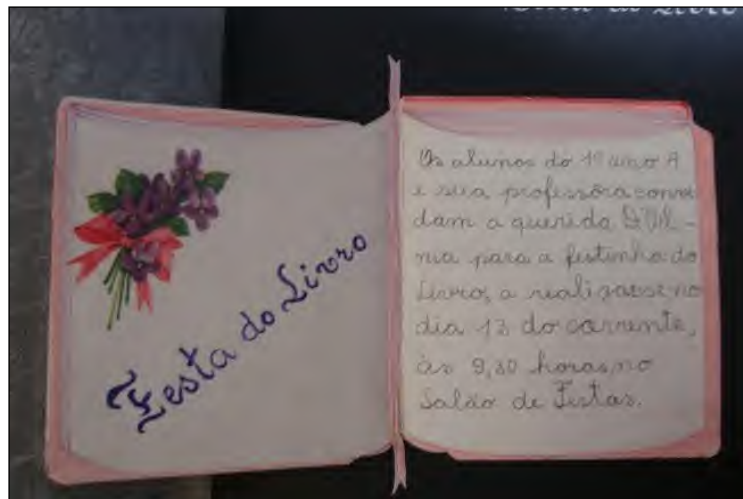 Festa do Livro
Os alunos do 1º ano A
e sua professôra convi
dam a querida
para a festinha do
Livro, a realizar-se no
dia 13 do corrente,
às 9,30 horas, no
Salão de Festas.